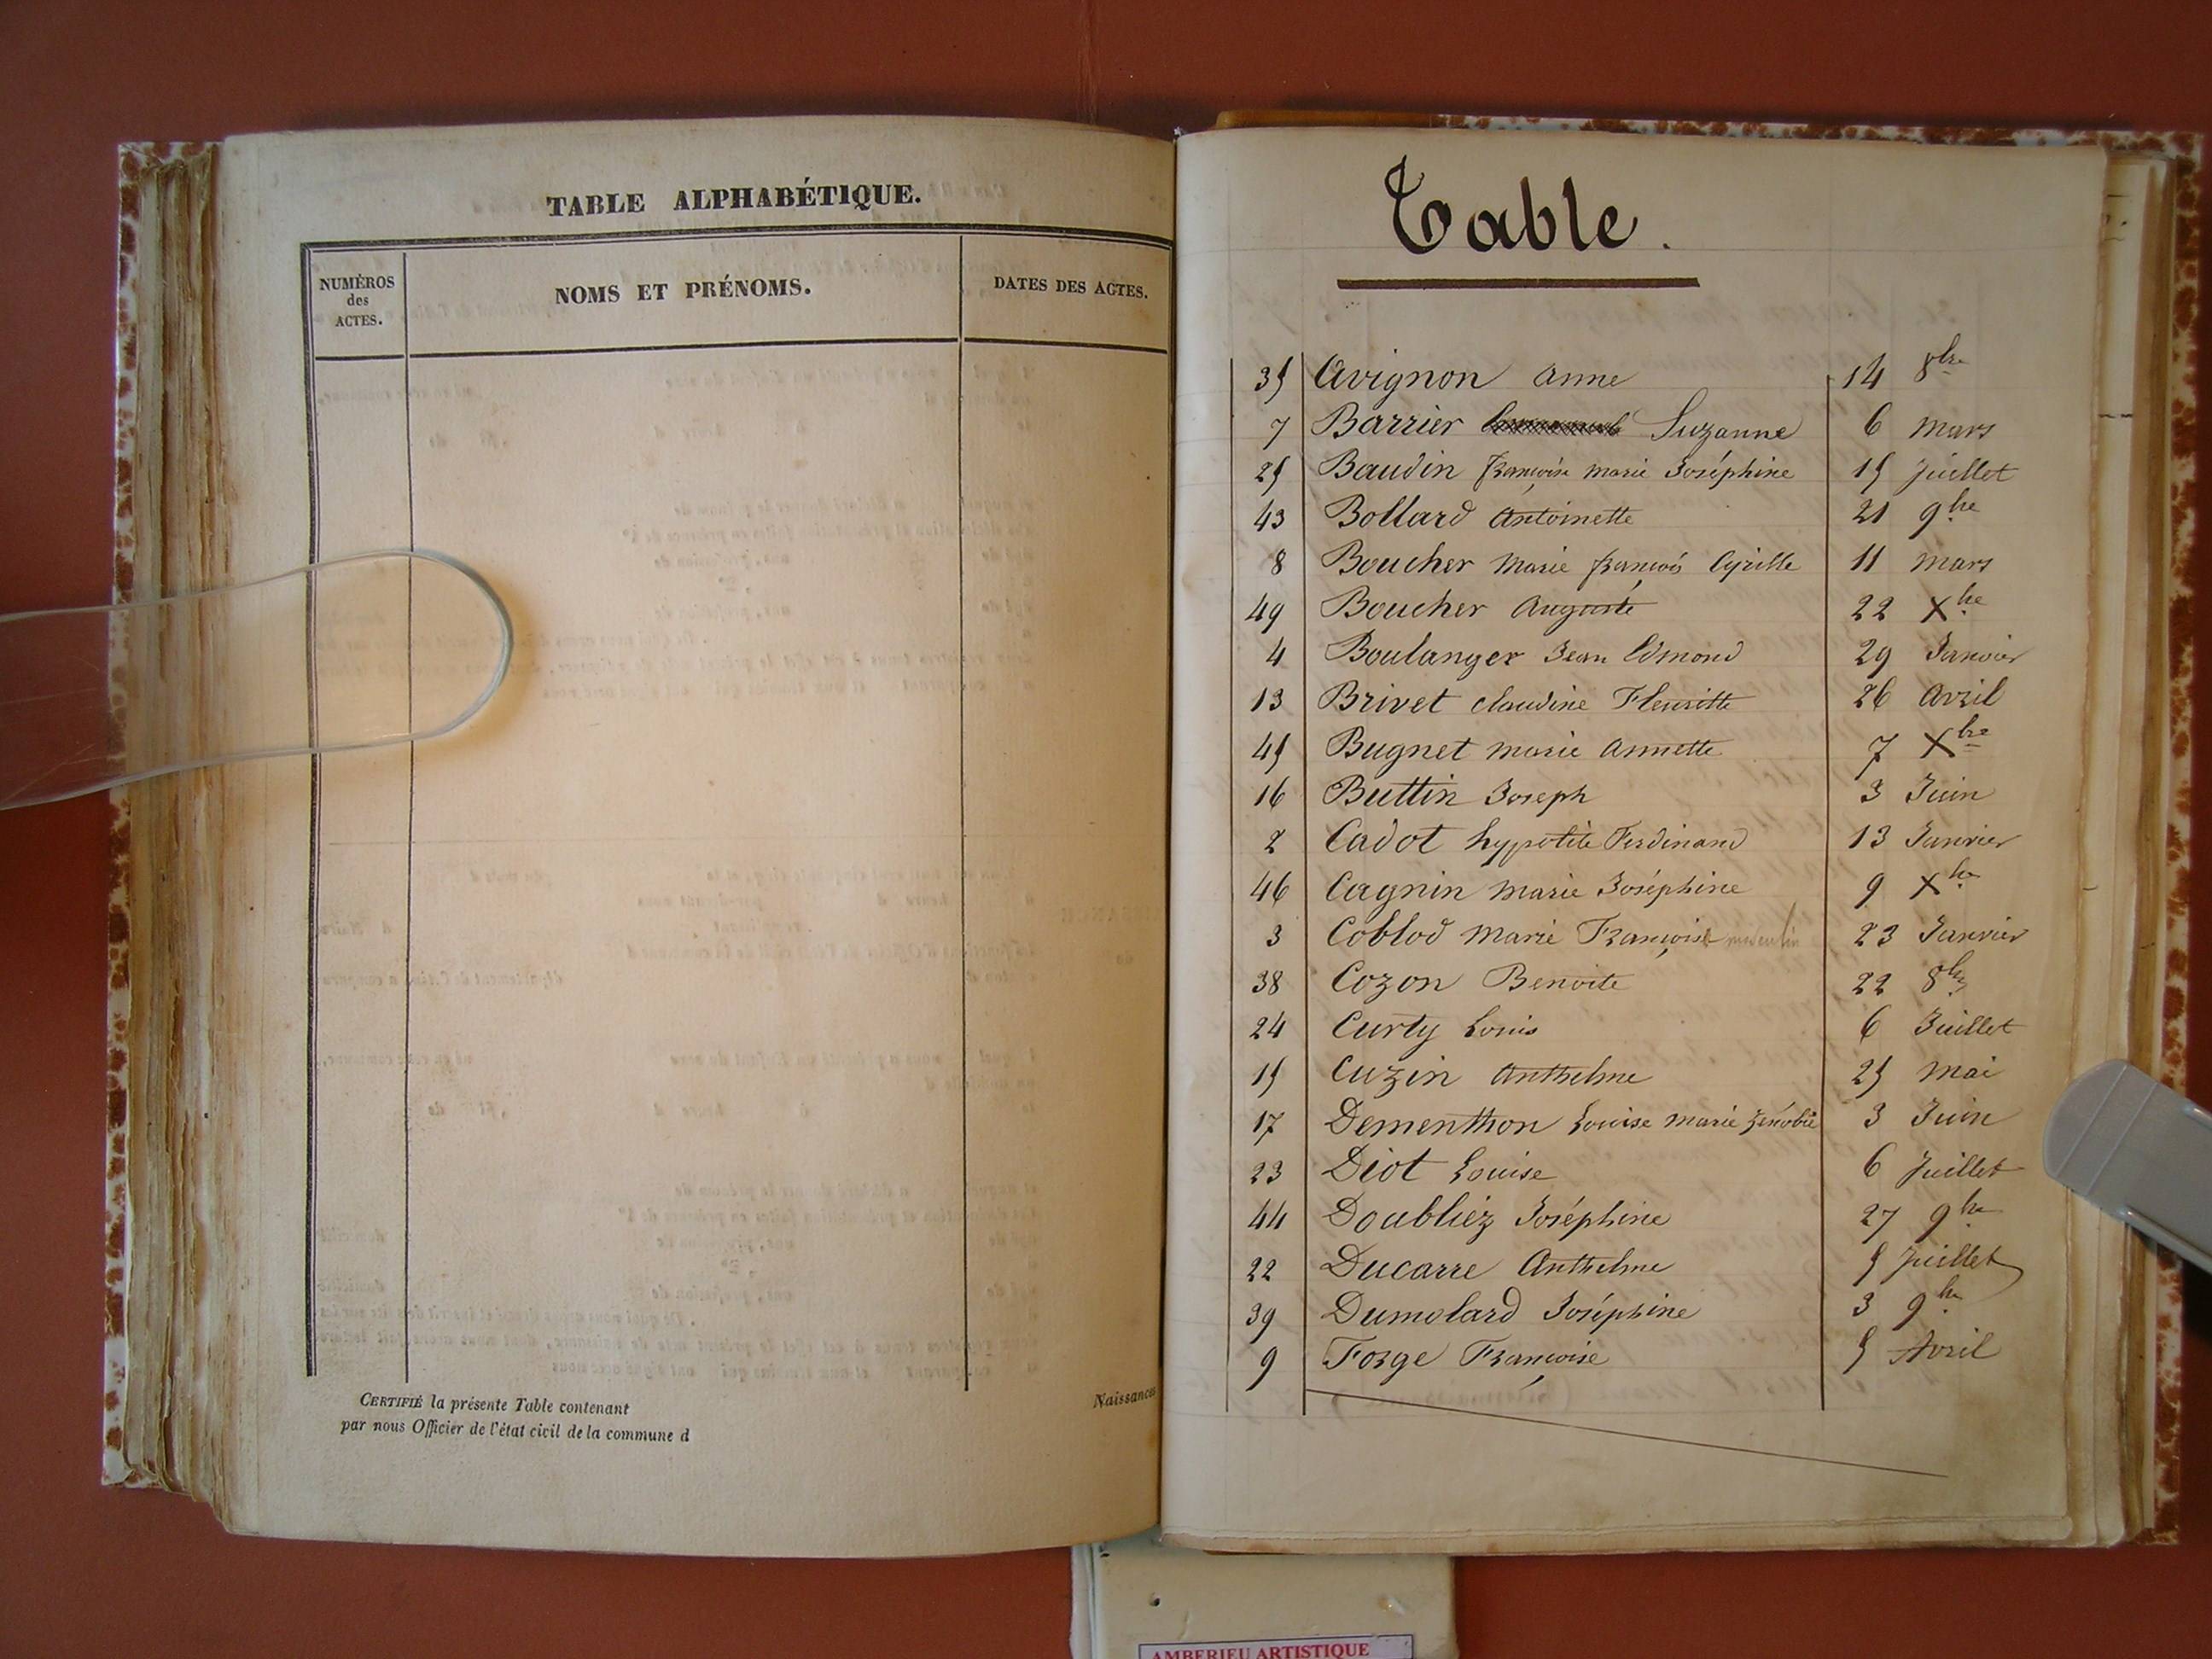 TABLE ALPHABÉTIQUE.
NUMÉROS
des
ACTES.
NOMS ET PRÉNOMS.
DATES DES ACTES.
CERTIFIÉ la présente Table contenant
par nous Officier de l'état civil de la commune d
Naissances
Table.
35 Avignon Anne 14 8bre
7 Barrier Suzanne 6 Mars
25 Baudin françoise marie Joséphine 15 Juillet
43 Bollard Antoinette 21 9bre
8 Boucher Marie françois Cyrille 11 Mars
49 Boucher Auguste 22 Xbre
4 Boulanger Jean Edmond 29 Janvier
13 Brivet Claudine Fleuritte 26 Avril
45 Bugnet Marie Annette 7 Xbre
16 Buttin Joseph 3 Juin
2 Cadot hypolite Ferdinand 13 Janvier
46 Cagnin Marie Joséphine 9 Xbre
3 Coblod Marie François masculin 23 Janvier
38 Cozon Benoite 22 8bre
24 Curty Louis 6 Juillet
15 Cuzin Anthelme 25 Mai
17 Dementhon Louise Marie Zénobie 3 Juin
23 Diot Louise 6 Juillet
44 Doubliez Joséphine 27 9bre
22 Ducarre Anthelme 5 Juillet
39 Dumolard Joséphine 3 9bre
9 Forge Françoise 5 Avril
AMBERIEU ARTISTIQUE